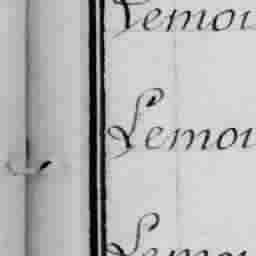 Lemoi
Lemoi
Lemoi